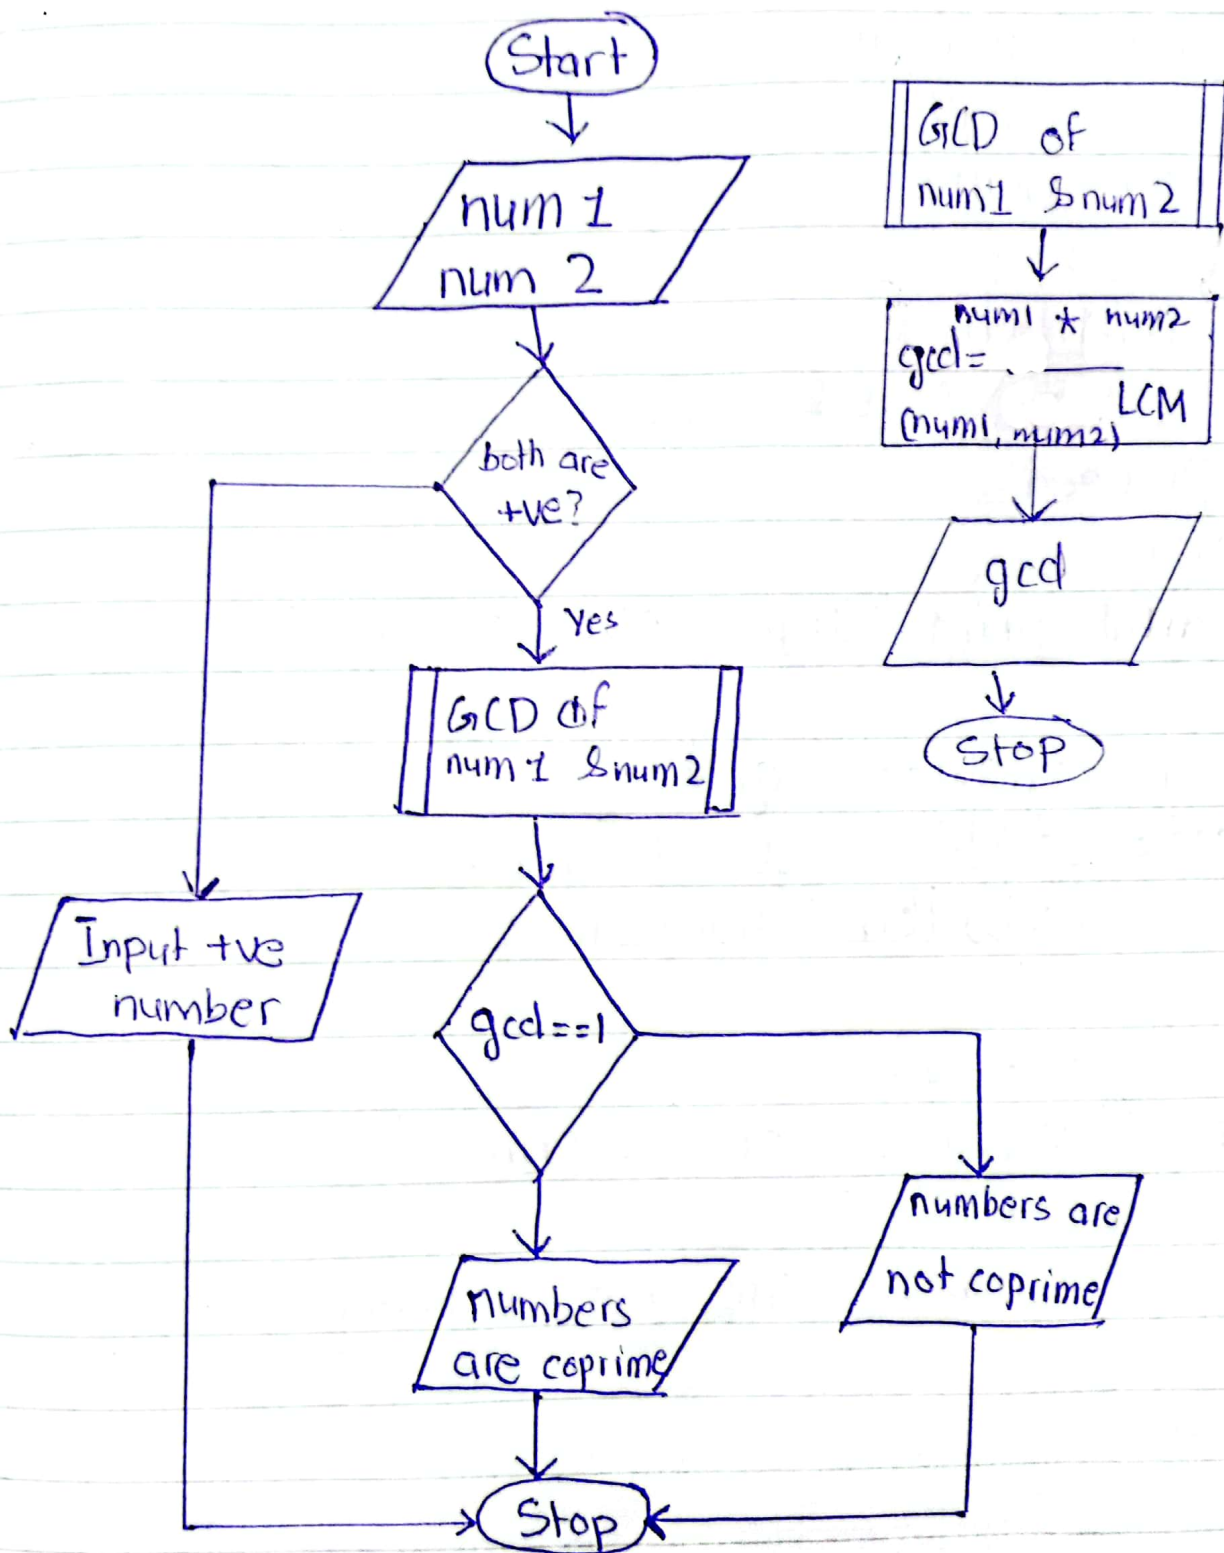 Start
num 1
num 2
both are
+ve?
Yes
GCD of
num 1 & num 2
Input +ve
number
gcd==1
numbers
are coprime
numbers are
not coprime
Stop
GCD of
num1 & num2
num1 * num2
gcd = . ____
LCM
(num1, num2)
gcd
Stop